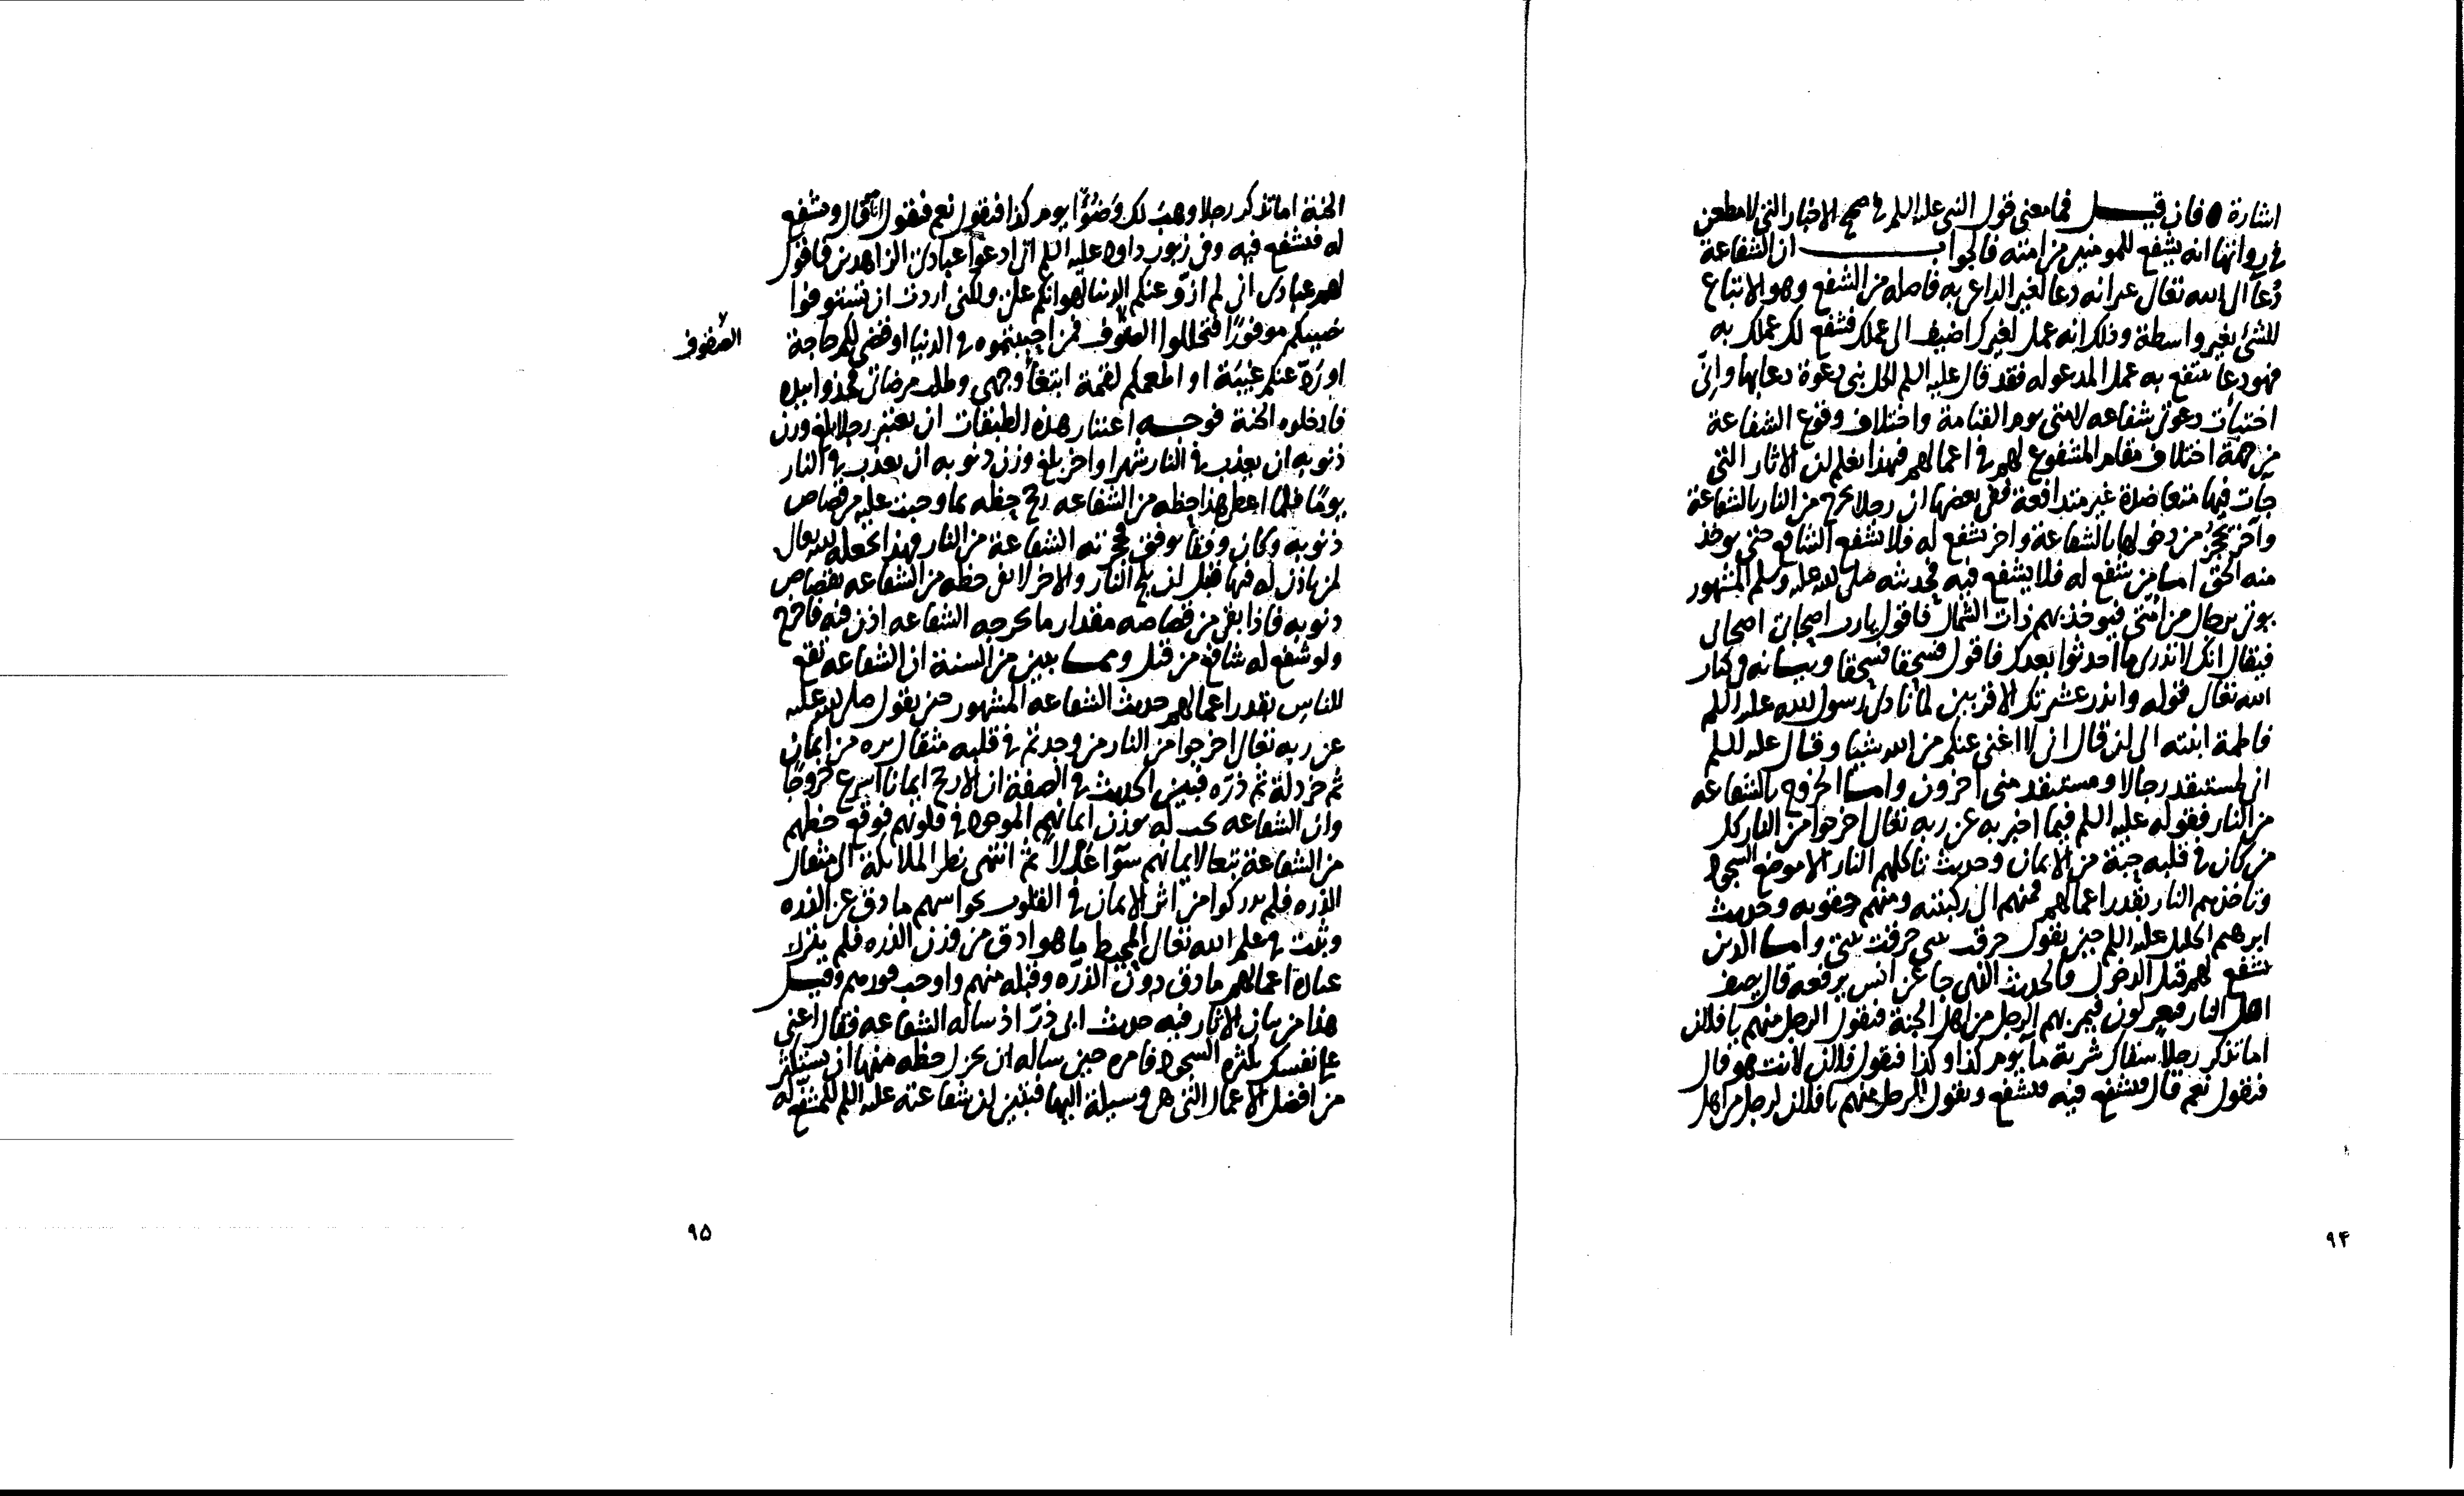 اشارة ٥ فان قيل فما معنى قول النبي عليه السلم في صحيح الاخبار التي لا مطعن
في رواتها انه يشفع للمومنين من امته فالجواب ان الشفاعة
دُعآ الى الله تعالى غير انه دعا لغير الداعي به فاصله من الشفع وهو الاتباع
للشئ بغير واسطة وذلك انه عمل لغيرك اضيف الى عملك فشفع لك عملك به
فهو دعآ ينتفع به عمل المدعو له فقد قال عليه السلم لكل نبي دعوة دعا بها واني
اختبأت دعوتي شفاعه لامتي يوم القيامة واختلاف وقوع الشفاعة
من جهة اختلاف مقام المشفوع لهم في اعمالهم فبهذا يعلم ان الاثار التي
جآت فيها متعاضدة غير متدافعة ففي بعضها ان رجلا يخرج من النار بالشفاعة
وآخر يُحجَز من دخولها بالشفاعة واخر يشفع له فلا يشفع الشافع حتى يوخذ
منه الحق اما من يشفع له فلا يشفع فيه فحديثه صلى الله عليه وسلم المشهور
يوتى برجال من امتي فيوخذ بهم ذات الشمال فاقول يارب اصحابي اصحابي
فيقال انك لا تدري ما احدثوا بعدك فاقول فسحقا فسحقا وبيانه في كتاب
الله تعالى قوله وانذر عشيرتك الاقربين لما نادى رسول الله عليه السلم
فاطمة ابنته الى ان قال اني لا اغني عنكم من الله شيا وقال عليه السلم
اني لمستنقذ رجالا ومستنقذ مني آخرون واما الخروج بالشفاعه
من النار فقوله عليه السلم فيما اخبر به عن ربه تعالى اخرجوا من النار كل
من كان في قلبه حبة من الايمان وحديث تاكلهم النار الا موضع السجود
وتاخذهم النار بقدر اعمالهم فمنهم الى ركبتيه ومنهم حقويه وحديث
ابرهيم الخليل عليه السلم حين يقول حرقت بني حرقت بني واما الذين
يشفع لهم قبل الدخول فالحديث الذي جا عن انس يرفعه قال يصف
اهل النار فيعدلون فيمر بهم الرجل من اهل الجنة فيقول الرجل منهم يا فلان
اما تذكر رجلا سقاك شربة مآ يوم كذا وكذا فيقول فلان لانت هو قال
فيقول نعم قال فيشفع فيه فيشفع ويقول الرجل منهم يا فلان لرجل من اهل
٩۴
الجنة اما تذكر رجلا وهب لك وَضُوًا يوم كذا فيقول نعم فيقول انا قال ويشفع
له فيشفع فيه وفي زبور داود عليه السلم اني ادعوا عبادي الزاهدين فاقول
لهم عبادي اني لم ازو عنكم الدنيا لهوانكم علي ولكني اردت ان تستوفوا
نصيبكم موفورًا فتخللوا الصفوف فمن احببتموه في الدنيا او قضى لكم حاجة
الصفوف
او ردّ عنكم غيبة او اطعمكم لقمة ابتغآ وجهي وطلب مرضاتي فخذوا بيده
فادخلوه الجنة فوجه اعتبار هذه الطبقات ان يعتبر رجلا بلغ وزن
ذنوبه ان يعذب في النار شهرا واخر بلغ وزن ذنوبه ان يعذب في النار
يومًا فلما اعطي هذا حظه من الشفاعه رجح حظه بما وجبت عليه من قصاص
ذنوبه وكان وفقا بوفق فحجزته الشفاعة من النار فهذا يجعله الله تعالى
لمن ياذن له فيها قبل ان يلج النار والاخر لا يفي حظه من الشفاعه بقصاص
ذنوبه فاذا بقي من قصاصه مقدار ما يخرجه الشفاعه اذن فيه فاخرج
ولو شفع له شافع من قبل ومما يبين من السنة ان الشفاعه تقع
للناس بقدر اعمالهم حديث الشفاعه المشهور حين يقول صلى الله عليه
عن ربه تعالى اخرجوا من النار من وجدتم في قلبه مثقال بره من ايمان
ثم خردلة ثم ذرّه فبين الحديث في الصفة ان الارجح ايمانا اسرع خروجًا
وان الشفاعه تجب له بوزن ايمانهم الموجود في قلوبهم فوقع حظهم
من الشفاعة تبعا لايمانهم سوآ عدلا ثم انتهى نظر الملائكة الى مثقال
الذره فلم يدركوا من اثر الايمان في القلوب بحواسهم ما دق عن الذره
وثبت في علم الله تعالى المحيط ما هو ادق من وزن الذره فلم يترك
عباده اعمالهم ما دق دون الذرّه وقبله منهم واوجب فوزهم وقيل
هذا من بيان الاثار فيه حديث ابي ذرّ اذ ساله الشفاعه فقال اعني
على نفسك بكثرة السجود فامره حين ساله ان يجزل حظه منها ان يستكثر
من افضل الاعمال التي هي وسيلة اليها فتبين ان شفاعته عليه السلم للمشفع له
٩۵